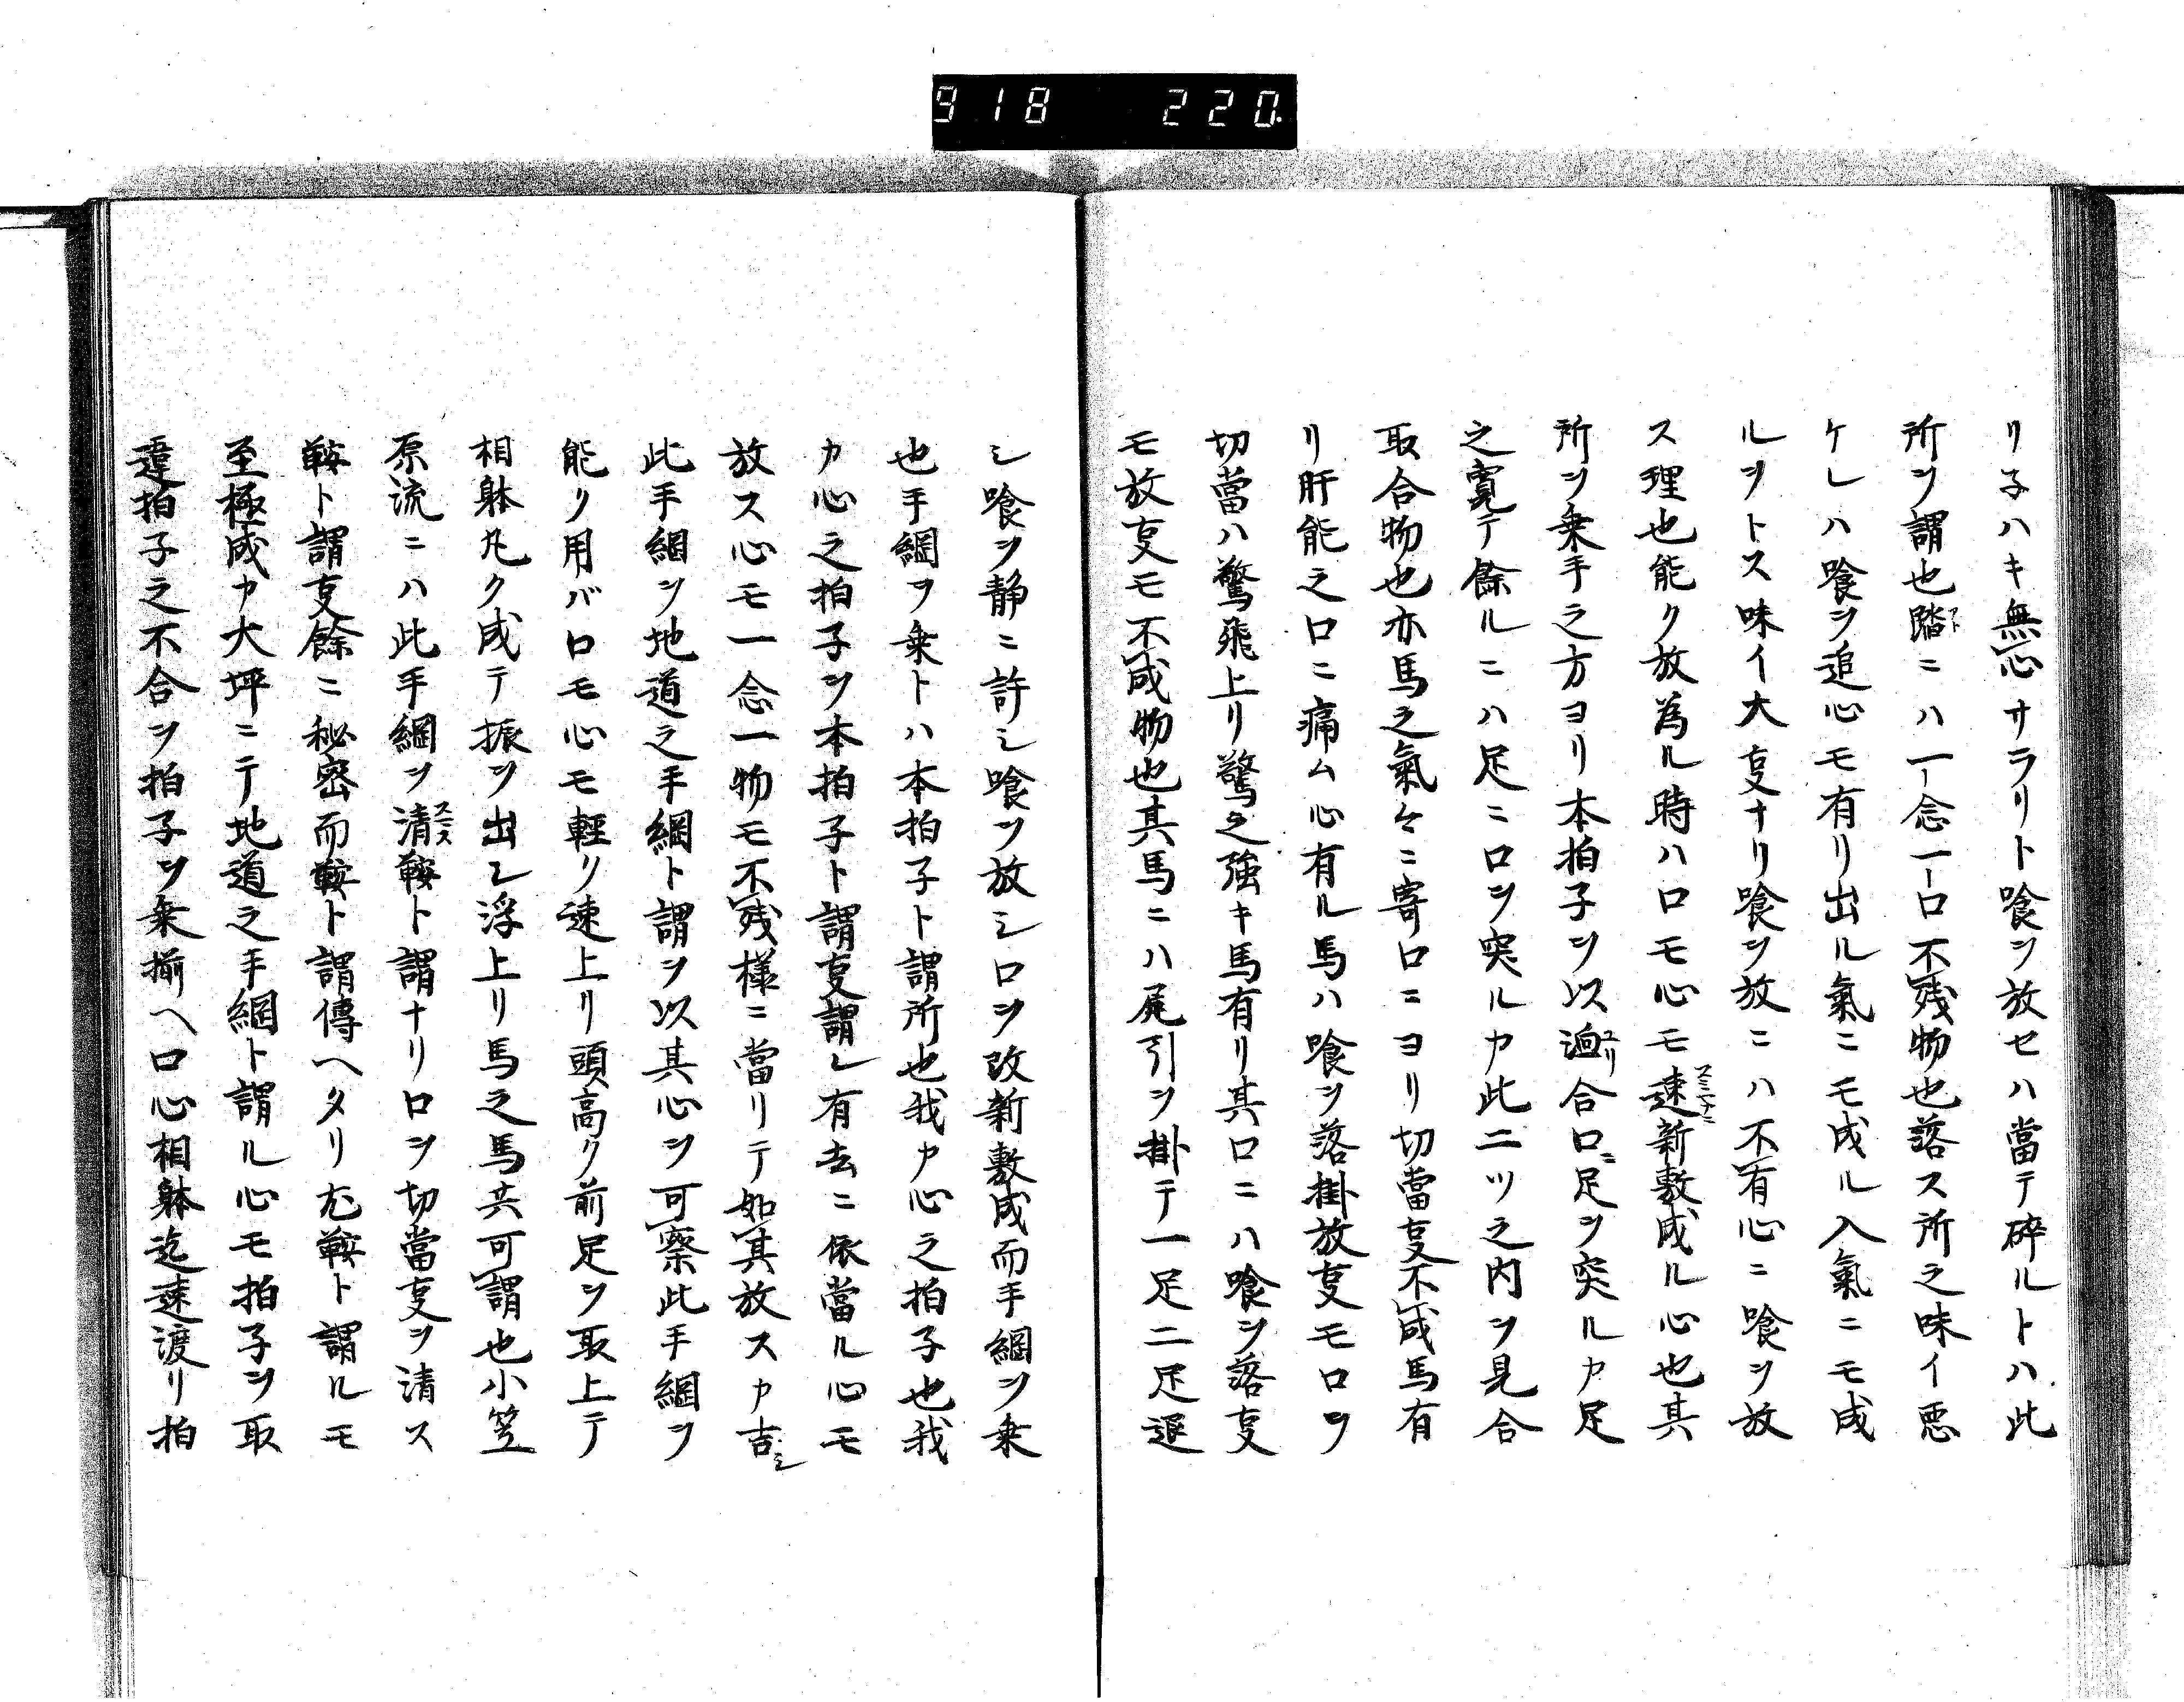 918 220
リ子ハキ無心サラリト喰ヲ放セハ當テ碎ルトハ此
所ヲ謂也踏ニハ一念一口不残物也落ス所之味イ悪
ケレハ喰ヲ追心モ有リ出ル氣ニモ成ル入氣ニモ成
ルヲトス味イ大㕝ナリ喰ヲ放ニハ不有心ニ喰ヲ放
ス理也能ク放為ル時ハ口モ心モ速新敷成ル心也其
所ヲ乗手之方ヨリ本拍子ヲ以廻合口ニ足ヲ突ルカ足
之寛テ餘ルニハ足ニ口ヲ突ルカ此二ツ之内ヲ見合
取合物也亦馬之氣々ニ寄口ニヨリ切當㕝不成馬有
リ肝能之口ニ痛ム心有ル馬ハ喰ヲ落掛放㕝モ口ヲ
切當ハ驚飛上リ驚之強キ馬有リ其口ニハ喰ヲ落㕝
モ放㕝モ不成物也其馬ニハ尾引ヲ掛テ一足二足退
シ喰ヲ静ニ許シ喰ヲ放シ口ヲ改新敷成而手綱ヲ乗
也手綱ヲ乗トハ本拍子ト謂所也我カ心之拍子也我
カ心之拍子ヲ本拍子ト謂㕝謂レ有去ニ依當ル心モ
放ス心モ一念一物モ不残様ニ當リテ如其放スカ吉シ
此手綱ヲ地道之手綱ト謂ヲ以其心ヲ可察此手綱ヲ
能ク用バ口モ心モ輕ク速上リ頭高ク前足ヲ取上テ
相躰凡ク成テ振ヲ出シ浮上リ馬之馬共可謂也小笠
原流ニハ此手綱ヲ清鞍ト謂ナリ口ヲ切當㕝ヲ清ス
鞍ト謂㕝餘ニ秘密而鞍ト謂傳ヘタリ尤鞍ト謂ルモ
至極成カ大坪ニテ地道之手綱ト謂ル心モ拍子ヲ取
違拍子之不合ヲ拍子ヲ乗揃ヘ口心相躰迄速渡リ拍